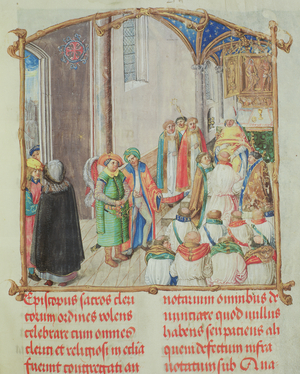 Episcopus sacros cleri
corum ordines volens
celebrare cum omnes
clerici et religiosi in eclia
fuerint congregati an
notarium omnibus de
nunciare quod nullus
habens seu patiens ali
quem defectum infra
notatum sub